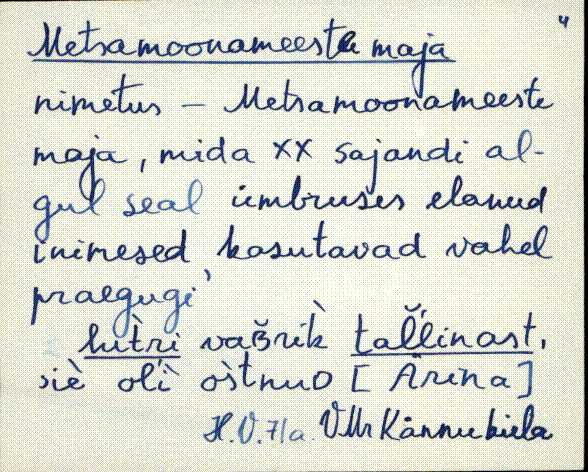 4
Metsamoonameeste maja
nimetus – Metsamoonameeste
maja, mida XX sajandi al-
gul seal ümbruses elanud
inimesed kasutavad vahel
praegugi
hìtri vaʙ̌rik̀ tal̆l̀inast,
siè oĺì òstnuD [Ärina]
H.V. 71a. VMr Kännuküla